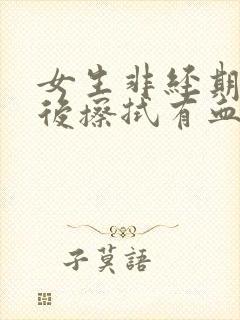 女生非經期
後擦拭有血
子莫語